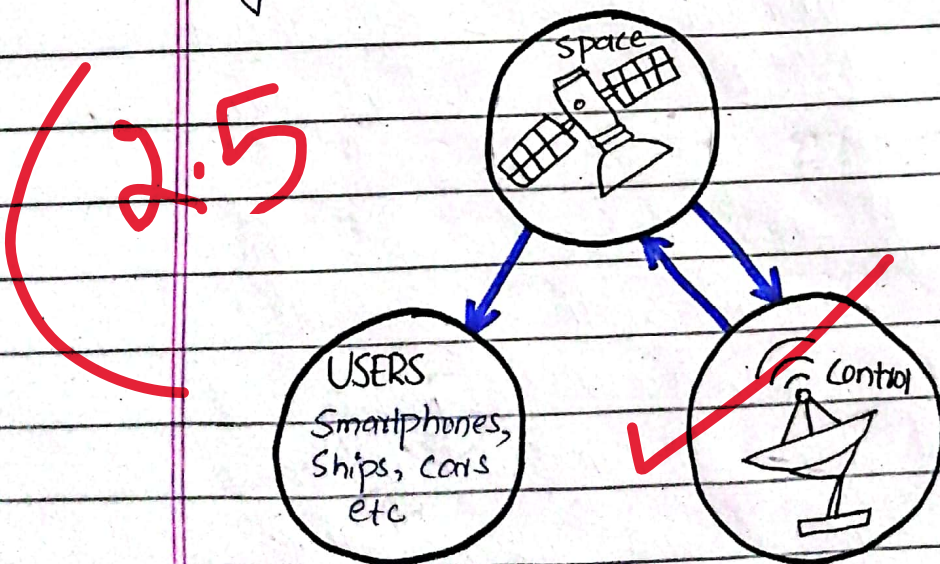 space
2.5
USERS
Smartphones,
Ships, cars
etc
Control